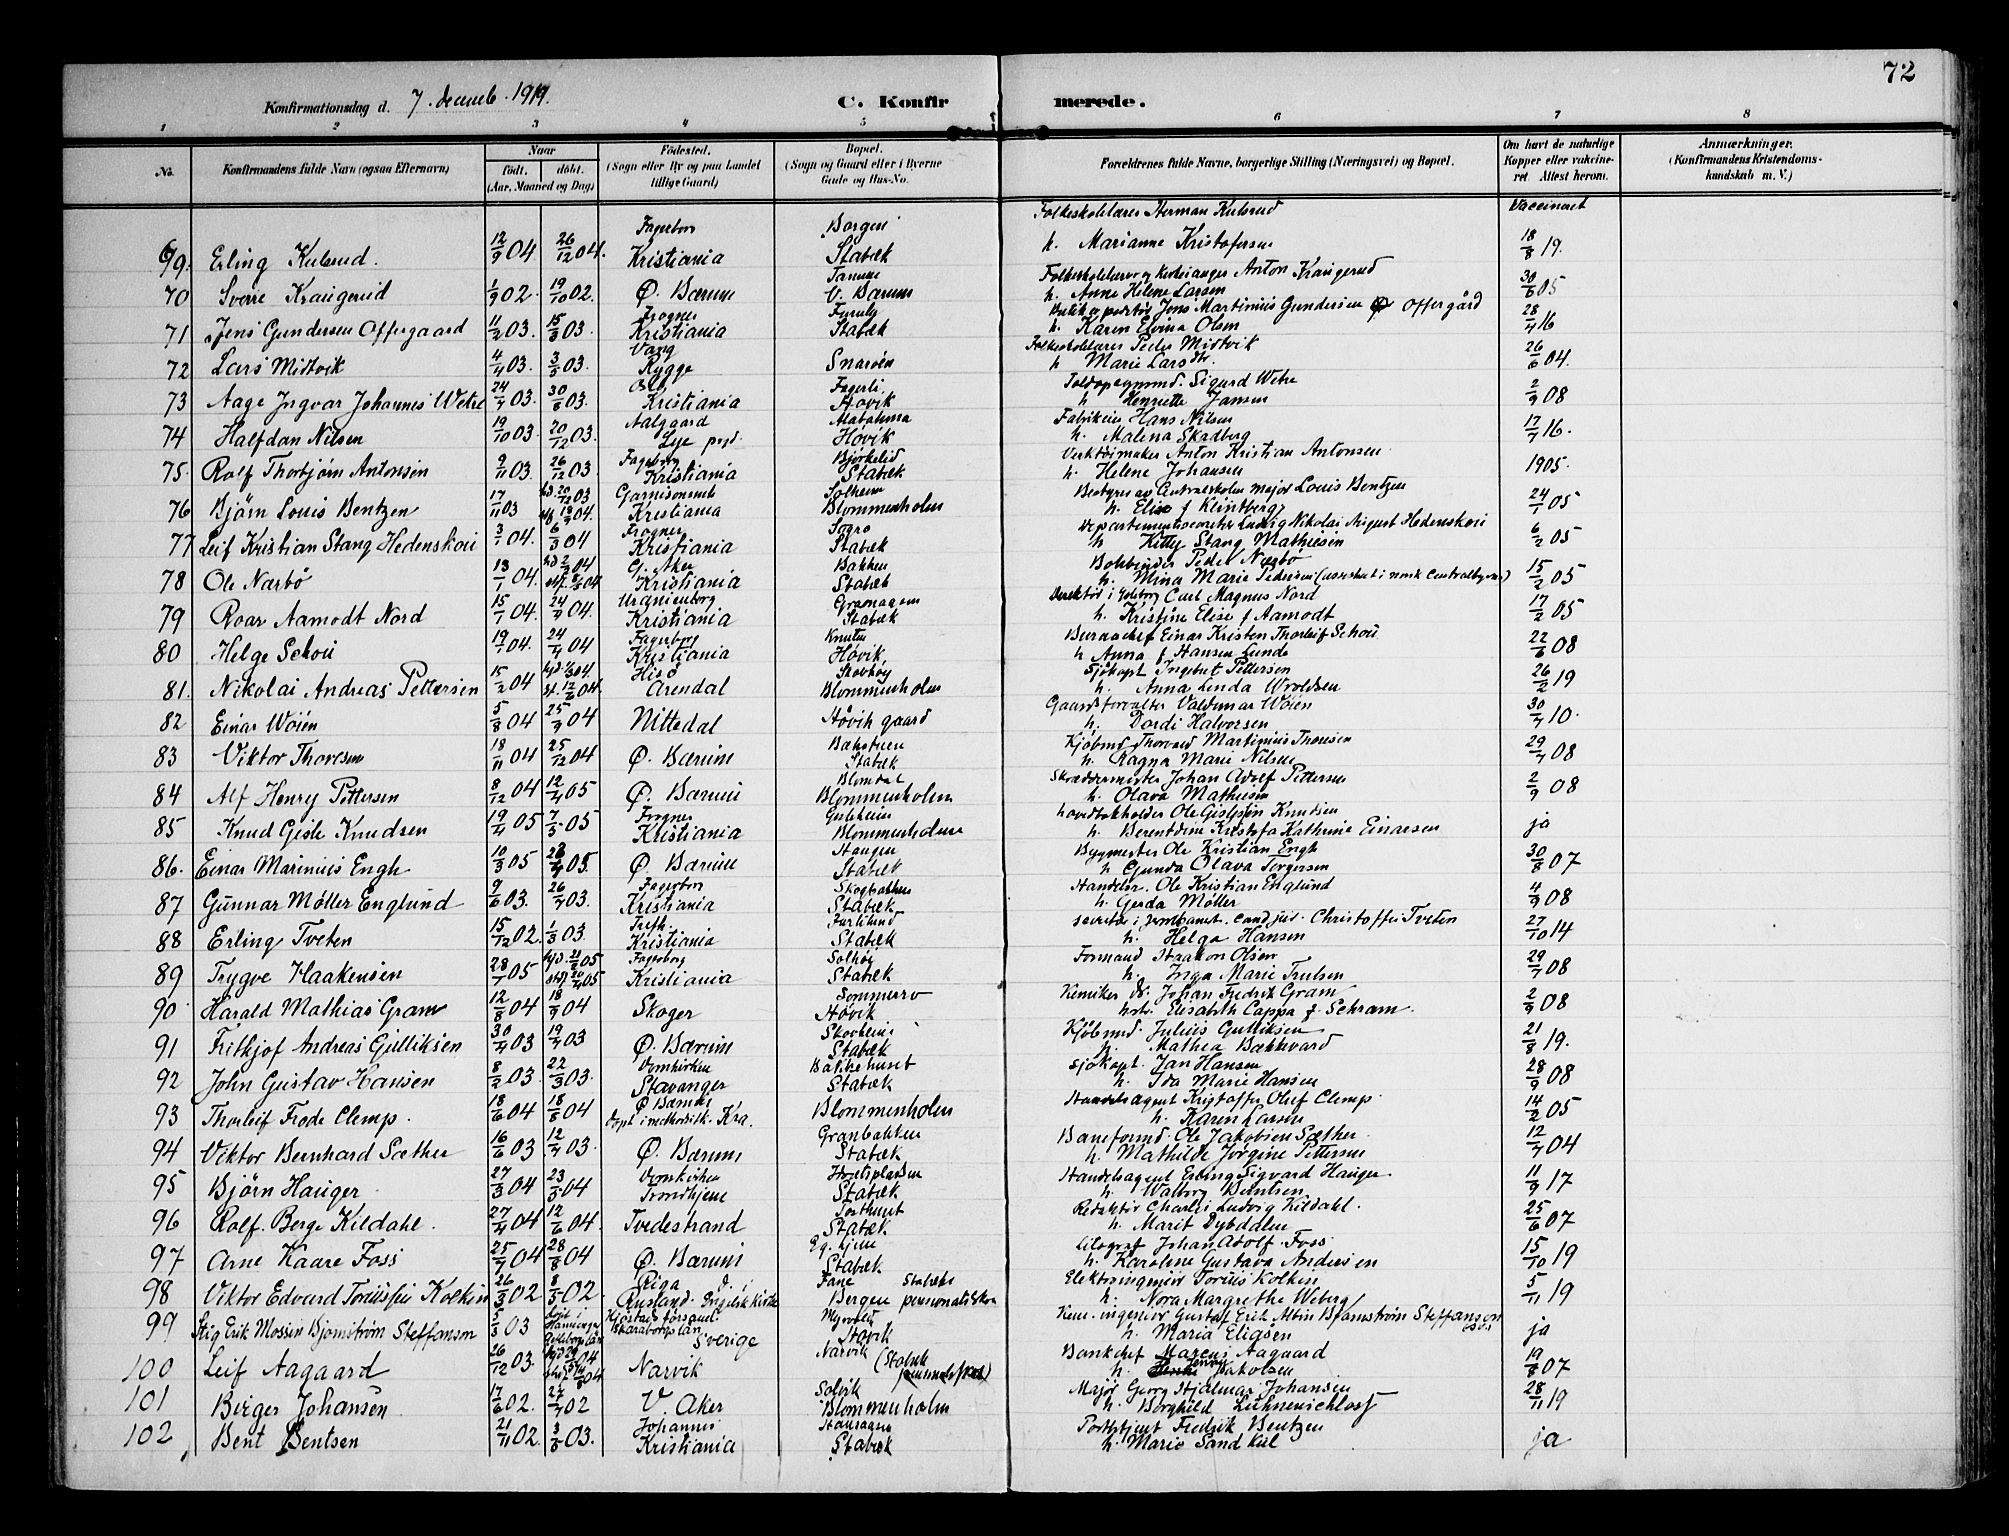 72
Konfirmationsdag d. 7. decemb. 1919. C. Konfirmerede.
1 2 3 4 5 6 7 8
No. Konfirmandens fulde Navn (ogsaa Efternavn) Naar født. døbt. (Aar, Maaned og Dag) Fødested. (Sogn eller By og paa Landet tillige Gaard) Bopæl. (Sogn og Gaard eller i Byerne Gade og Hus-No. Forældrenes fulde Navne, borgerlige Stilling (Næringsvei) og Bopæl. Om havt de naturlige Kopper eller vakcineret. Attest herom. Anmærkninger. (Konfirmandens Kristendomskundskab m. V.)
Fagerborg Borgen Folkeskolelærer Herman Kulsrud Vaccineret
69. Erling Kulsrud. 12/9 04 26/12 04. Kristiania Stabæk h. Marianne Kristofersen 18/8 19.
Tanum Folkeskolelærer og kirkesanger Anton Kraugerud
70 Sverre Kraugerud 1/9 02. 19/10 02. Ø. Bærum V. Bærum h. Anne Helene Larsen 30/6 05
Frogner Furuly Jens Martinius Gundersen Offergård
71 Jens Gundersen Offergaard 11/2 03. 15/3 03. Kristiania Stabæk h. Karen Elvina Olsen 28/4 16
Vang Folkeskolelærer Peder Midtvik
72 Lars Midtvik 4/4 03. 3/5 03. Rygge Snarøen h Marie Larsdtr. 26/6 04.
Oslo Fagerli Toldopsynsmd. Sigurd Wetre
73 Aage Ingvar Johannes Wetre 24/7 03. 30/8 03. Kristiania Høvik h Henriette Jansen 2/9 08
Aalgaard Fabrikeier Hans Nilsen
74 Halfdan Nilsen 19/10 03. 20/12 03. Lye prgd. Høvik h. Malena Skadberg 17/7 16.
Fagerborg Bjørkelid Verktøimaker Anton Kristian Antonsen
75. Rolf Thorbjørn Antonsen 9/11 03. 26/12 03. Kristiania Stabæk h. Helene Johansen 1905.
Garnisonsmh Solheim Bestyrer av Centralskolen major Louis Bentzen
76 Bjørn Louis Bentzen 17/11 03 hd. 20/12 03 Kristiania Blommenholm h. Elise f Klintberg 24/1 05
Frogner Solro Departementssecretær Ludvig Nikolai August Hedenskou
77 Leif Kristian Stang Hedenskou 3/1 04. 6/3 04 Kristiania Stabæk h Kitty Stang Mathiesen 6/2 05
G. Aker Bakken Bokbinder Peder Næsbø
78 Ole Næsbø 13/1 04. Kristiania Stabæk h. Mina Marie Pedersen (assistent i norsk Centralbyraa) 15/2 05
Uranienborg Granagem Direktør i Carl Magnus Nord
79 Roar Aamodt Nord 15/1 04. 24/4 04. Kristiania Stabæk h. Kristine Elise f Aamodt 17/2 05
Fagerborg Knuten Bureauchef Einar Kristen Thorleif Schou
80 Helge Schou 19/1 04. 24/4 04 Kristiania Høvik h Anna f Hansen Lunde 22/6 08
Hisø Skovhøy Sjøkapt Ingebret Pettersen
81. Nikolai Andreas Pettersen 15/2 04 Arendal Blommenholm h. Anna Linda Wroldsen 26/2 19
Gaardsforvalter Valdemar Wøien
82 Einar Wøien 5/8 04 25/9 04 Nittedal Høvik gaard h. Dordi Halvorsen 30/7 10.
Bakstuen Kjøbmd Thorvald Martinius Thoresen
83 Viktor Thoresen 18/11 04 25/12 04 Ø. Bærum Stabæk h. Ragna Marie Nilsen 29/7 08
Blomdal Skræddermester Johan Adolf Pettersen
84 Alf Henry Pettersen 8/12 04 12/4 05 Ø. Bærum Blommenholm h. Olava Mathiesen 2/9 08
Frogner Gisleheim hovedbokholder Ole Gislesøn Knudsen
85 Knud Gisle Knudsen 19/4 05 7/5 05 Kristiania Blommenholm h. Berentdine Kristofa Kathrine Einarsen ja
Haugen Bygmester Ole Kristian Engh
86. Einar Marinius Engh 10/3 05 05. Ø. Bærum Stabæk h Gunda Olava Torgersen 30/8 07
Fagerborg Skogbakken Handelsr. Ole Kristian Englund
87 Gunnar Møller Englund 9/6 03. 26/7 03. Kristiania Stabæk h. Gerda Møller 4/9 08
Trefh. Furulund secretær i jernbanest. cand jur. Christoffer Tveten
88 Erling Tveten 15/12 02. 1/3 03. Kristiania Stabæk h. Helga Hansen 27/10 14
Fagerborg Solhøy Formand Haakon Olsen
89 Trygve Haakensen 28/1 05 Kristiania Stabæk h. Inga Marie Trulsen 29/7 08
Sommerro Kemiker Dr. Johan Fredrik Gram
90. Harald Mathias Gram 12/8 04 18/9 04 Skoger Høvik h. Elisabeth Cappa f. Schram. 2/9 08
Skovheim Kjøbmd. Julius Gulliksen
91 Fritkjof Andreas Gulliksen 30/4 03 19/7 03 Ø. Bærum Stabæk h. Mathea Bækkevard 21/8 19.
Domkirken Bakkehuset Sjøkapt. Jan Hansen
92 John Gustav Hansen 8/2 03. 22/3 03. Stavanger Stabæk h. Ida Marie Hansen 28/9 08
Ø Bærum Handelsagent Kristoffer Oluf Clemp
93 Thorleif Frode Clemp. 18/6 04 18/8 04 døpt i methodistk. Kra. Blommenholm h. Karen Larsen 14/2 05
Granbakken Baneformd. Ole Jakobsen Sæther
94 Viktor Bernhard Sæther 16/6 03 12/7 03. Ø. Bærum Stabæk h. Mathilde Jørgine Pettersen 12/7 04
Domkirken Handelsagent Erling Sigvard Hauger
95 Bjørn Hauger 27/3 04 23/5 04 Trondhjem Stabæk h. Walborg Berntsen 11/9 17
Redaktør Charles Ludvig Kildahl.
96 Rolf Berge Kildahl. 27/4 04 12/6 04. Tvedestrand Stabæk h. Marit Dybdalen 25/6 07
Eg. hjem Litograf Johan Adolf Foss
97 Arne Kaare Foss 25/7 04 28/8 04 Ø. Bærum Stabæk h. Karoline Gustava Andersen 15/10 19
Riga Fane Stabæks Elektroingeniør Toriis Kolkin
98 Viktor Edvard Toriissen Kolkin 26/3 02 8/5 02 Rusland. Engelsk Kirke Bergen pensionatskole h. Nora Margrethe Weberg 5/11 19
Myrvold Kem. ingeniør Gustaf Erik Albin Bjømstrøm Steffanson
99 Stig Erik Mossin Bjomstrøm Steffanson 5/3 03 Skaraborgs län Sverige Høvik h. Maria Eliasen ja
Narvik Bankchef Marcus Aagaard
100 Leif Aagaard 26/12 03. Narvik (Stabæk pensionatskole) h. Jenny Jakobsen 19/8 07
Solvik Major Georg Hjalmar Johansen
101 Birger Johansen 17/6 02. 27/7 02 V. Aker Blommenholm h. Borghild Lühnenschloss 28/11 19
Johannes Haugen Postbetjent Fredrik Bentzen
102 Bent Bentsen 21/11 02. 3/5 03. Kristiania Stabæk h. Marie Sand Kiil ja